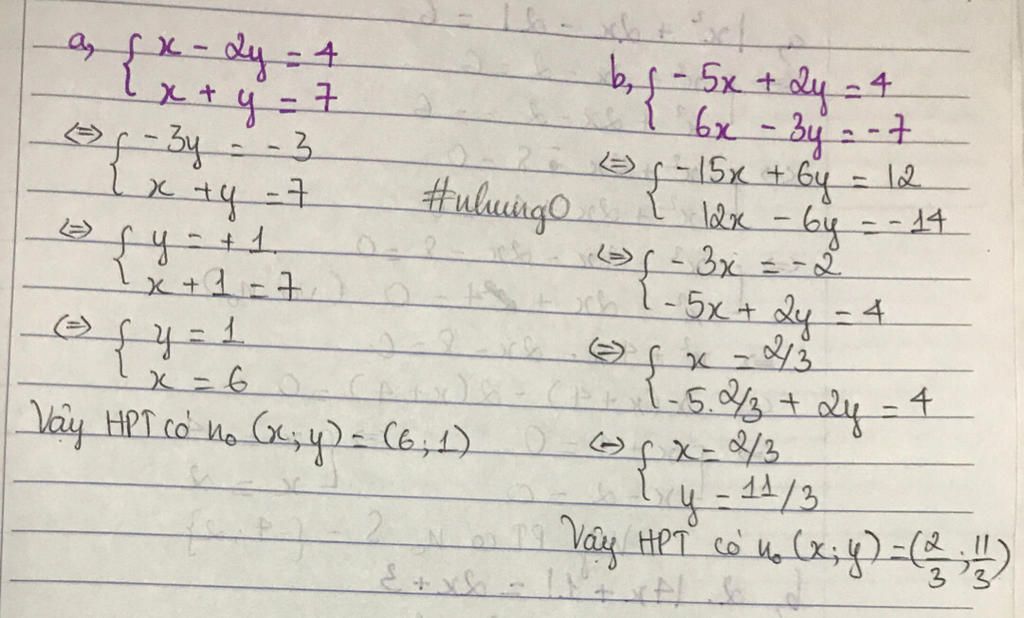 a, { x - 2y = 4
x + y = 7
<=> { -3y = -3
x + y = 7
<=> { y = +1
x + 1 = 7
<=> { y = 1
x = 6
Vậy HPT có no (x; y) = (6; 1)
#nhung0
b, { -5x + 2y = 4
6x - 3y = -7
<=> { -15x + 6y = 12
12x - 6y = -14
<=> { -3x = -2
-5x + 2y = 4
<=> { x = 2/3
-5.2/3 + 2y = 4
<=> { x = 2/3
y = 11/3
Vậy HPT có no (x; y) = (2/3; 11/3)